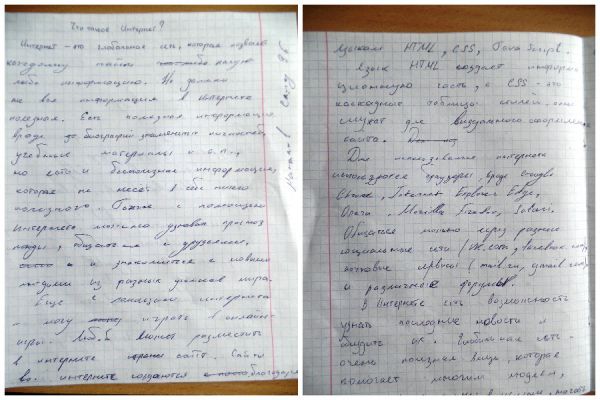 Что такое Интернет?
Интернет - это глобальная сеть, которая позволяет
каждому найти какую
либо информацию. Но далеко
не вся информация в Интернете
полезная. Есть полезная информация,
вроде до биографий знаменитых личностей,
учебные материалы и т.п.,
но есть и бесполезная информация,
которая не несёт в себе ничего
полезного. Также с помощью
Интернета можно узнавать прогноз
погоды, общаться с друзьями,
и знакомиться с новыми
людьми из разных уголков мира.
Ещё с помощью интернета
я могу играть в онлайн-
игры. Любой может разместить
в интернете сайт. Сайты
во интернете создаются благодаря
языкам HTML, CSS, Java Script.
Язык HTML создает информа
ционную часть, а CSS - это
каскадные таблицы стилей, они
служат для визуального оформления
сайта.
Для использования интернета
браузеры, вроде Google
Chrome, Internet Explorer Edge,
Opera, Mozilla Firefox, Safari.
Общаться можно через разные
социальные сети (vk.com, facebook.com),
почтовые сервисы (mail.ru, gmail.com)
и различные форумы.
В Интернете есть возможность
узнать последние новости и
обсудить их. Глобальная сеть -
очень полезная вещь, которая
помогает многим людям,